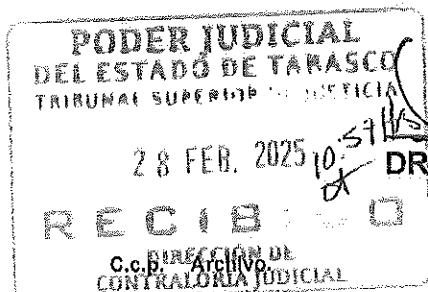 PODER JUDICIAL
DEL ESTADO DE TABASCO
TRIBUNAL SUPERIOR DE JUSTICIA
28 FEB. 2025 10:57
DR
RECIBIDO
DIRECCIÓN DE
C.c.p. Archivo.
CONTRALORÍA JUDICIAL